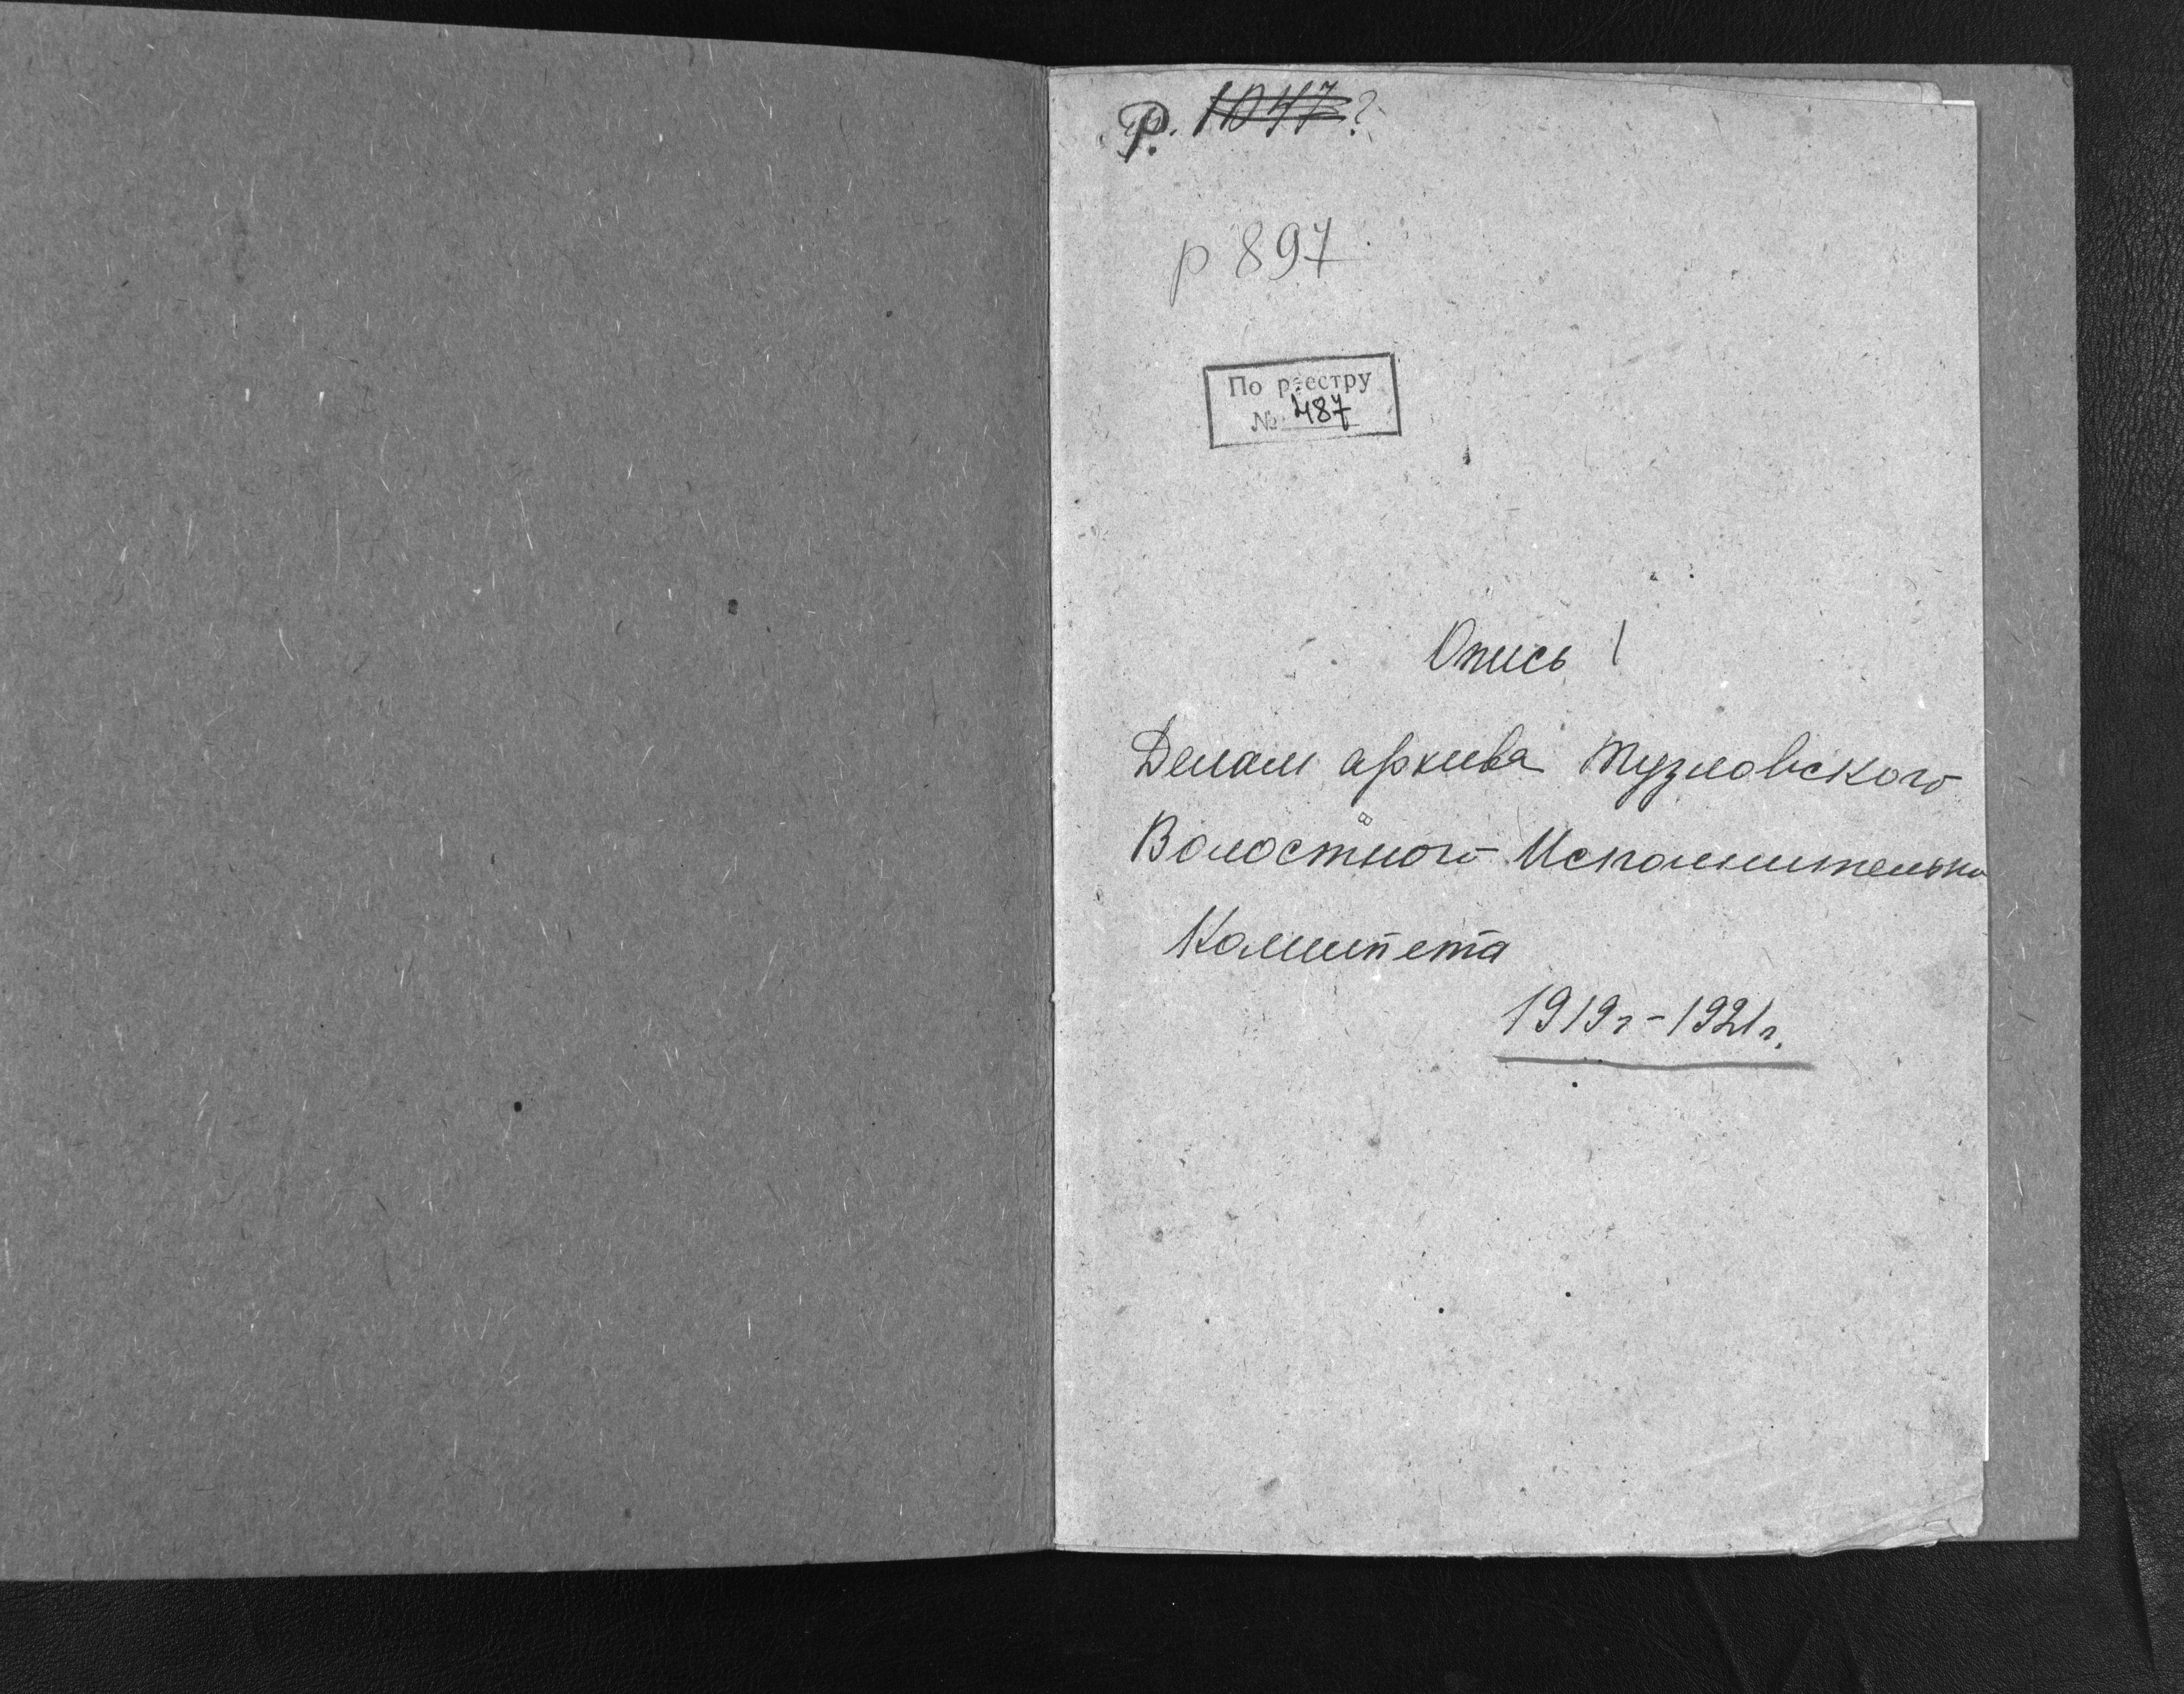 Р. 1047?
р 897
По реестру
№ 487
Опись 1
Делам архива Тузловского
Волостного Исполнительно
Комитета
1919г-1921г.